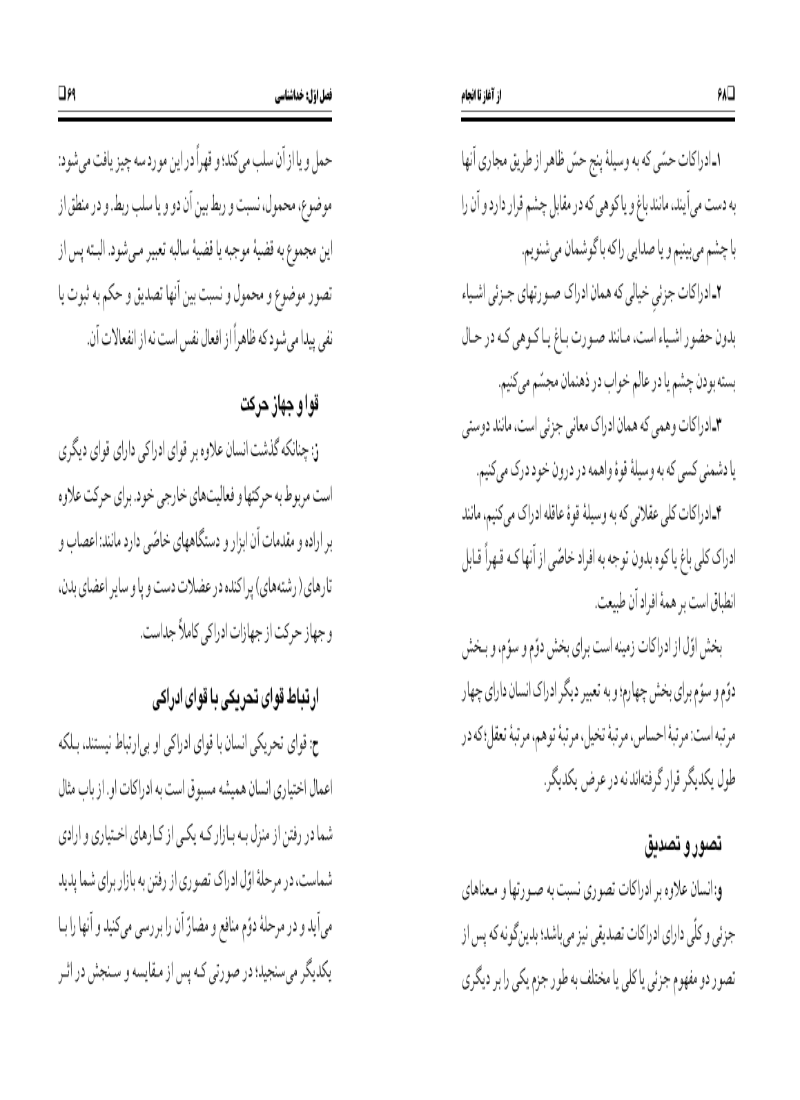 ❑۶۸ از آغاز تا انجام
۱ـ ادراکات حسّی که به وسیلهٔ پنج حسّ ظاهر از طریق مجاری آنها
به دست می‌آیند، مانند باغ و یا کوهی که در مقابل چشم قرار دارد و آن را
با چشم می‌بینیم و یا صدایی را که با گوشمان می‌شنویم.
۲ـ ادراکات جزئیِ خیالی که همان ادراک صورتهای جزئی اشیاء
بدون حضور اشیاء است، مانند صورت باغ یا کوهی که در حال
بسته بودن چشم یا در عالم خواب در ذهنمان مجسّم می‌کنیم.
۳ـ ادراکات وهمی که همان ادراک معانی جزئی است، مانند دوستی
یا دشمنی کسی که به وسیلهٔ قوهٔ واهمه در درون خود درک می‌کنیم.
۴ـ ادراکات کلی عقلانی که به وسیلهٔ قوهٔ عاقله ادراک می‌کنیم، مانند
ادراک کلی باغ یا کوه بدون توجه به افراد خاصّی از آنها که قهراً قابل
انطباق است بر همهٔ افراد آن طبیعت.
بخش اوّل از ادراکات زمینه است برای بخش دوّم و سوّم، و بخش
دوّم و سوّم برای بخش چهارم؛ و به تعبیر دیگر ادراک انسان دارای چهار
مرتبه است: مرتبهٔ احساس، مرتبهٔ تخیل، مرتبهٔ توهم، مرتبهٔ تعقل؛ که در
طول یکدیگر قرار گرفته‌اند نه در عرض یکدیگر.
تصور و تصدیق
و: انسان علاوه بر ادراکات تصوری نسبت به صورتها و معناهای
جزئی و کلّی دارای ادراکات تصدیقی نیز می‌باشد؛ بدین‌گونه که پس از
تصور دو مفهوم جزئی یا کلی یا مختلف به طور جزم یکی را بر دیگری
فصل اوّل: خداشناسی ۶۹❑
حمل و یا از آن سلب می‌کند؛ و قهراً در این مورد سه چیز یافت می‌شود:
موضوع، محمول، نسبت و ربط بین آن دو و یا سلب ربط. و در منطق از
این مجموع به قضیهٔ موجبه یا قضیهٔ سالبه تعبیر می‌شود. البته پس از
تصور موضوع و محمول و نسبت بین آنها تصدیق و حکم به ثبوت یا
نفی پیدا می‌شود که ظاهراً از افعال نفس است نه از انفعالات آن.
قوا و جهاز حرکت
ز: چنانکه گذشت انسان علاوه بر قوای ادراکی دارای قوای دیگری
است مربوط به حرکتها و فعالیت‌های خارجی خود. برای حرکت علاوه
بر اراده و مقدمات آن ابزار و دستگاههای خاصّی دارد مانند: اعصاب و
تارهای (رشته‌های) پراکنده در عضلات دست و پا و سایر اعضای بدن،
و جهاز حرکت از جهازات ادراکی کاملاً جداست.
ارتباط قوای تحریکی با قوای ادراکی
ح: قوای تحریکی انسان با قوای ادراکی او بی‌ارتباط نیستند، بلکه
اعمال اختیاری انسان همیشه مسبوق است به ادراکات او. از باب مثال
شما در رفتن از منزل به بازار که یکی از کارهای اختیاری و ارادی
شماست، در مرحلهٔ اوّل ادراک تصوری از رفتن به بازار برای شما پدید
می‌آید و در مرحلهٔ دوّم منافع و مضارّ آن را بررسی می‌کنید و آنها را با
یکدیگر می‌سنجید؛ در صورتی که پس از مقایسه و سنجش در اثر